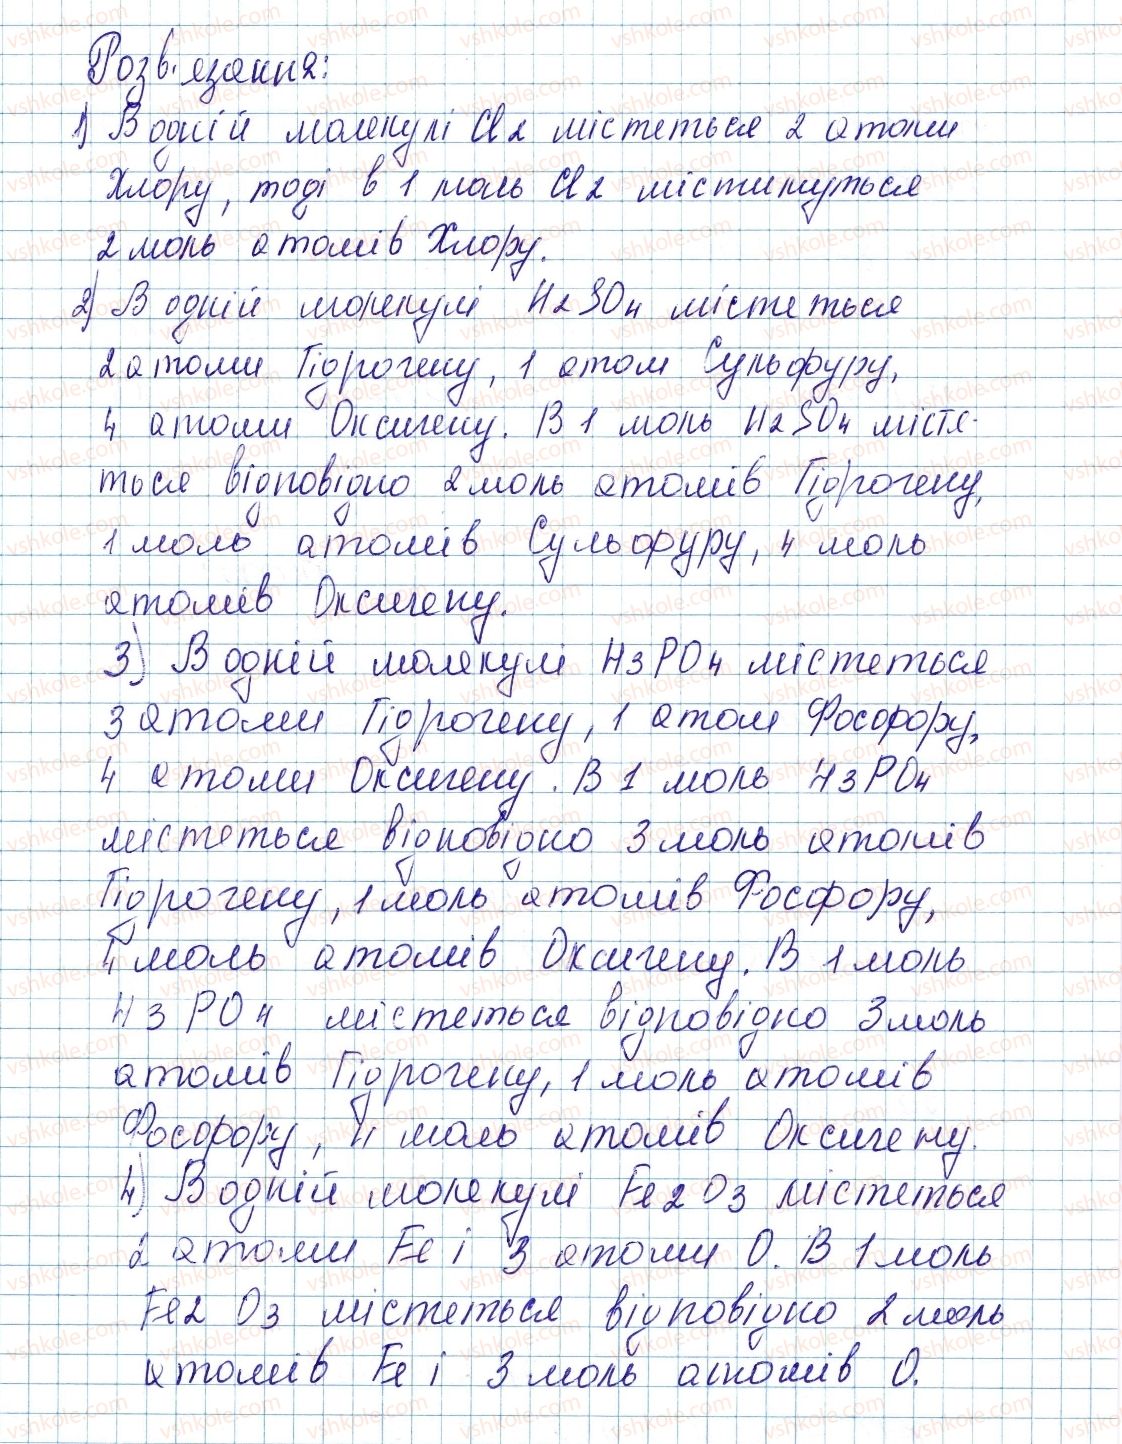 Розв'язання:
1) В одній молекулі Cl2 містеться 2 атоми
Хлору, тоді в 1 моль Cl2 містимуться
2 моль атомів Хлору.
2) В одній молекулі H2SO4 містеться
2 атоми Гідрогену, 1 атом Сульфуру,
4 атоми Оксигену. В 1 моль H2SO4 містя-
ться відповідно 2 моль атомів Гідрогену,
1 моль атомів Сульфуру, 4 моль
атомів Оксигену.
3) В одній молекулі H3PO4 містеться
3 атоми Гідрогену, 1 атом Фосфору,
4 атоми Оксигену. В 1 моль H3PO4
містеться відповідно 3 моль атомів
Гідрогену, 1 моль атомів Фосфору,
4 моль атомів Оксигену. В 1 моль
H3PO4 містеться відповідно 3 моль
атомів Гідрогену, 1 моль атомів
Фосфору, 4 моль атомів Оксигену.
4) В одній молекулі Fe2O3 містеться
2 атоми Fe і 3 атоми O. В 1 моль
Fe2O3 містеться відповідно 2 моль
атомів Fe і 3 моль атомів O.